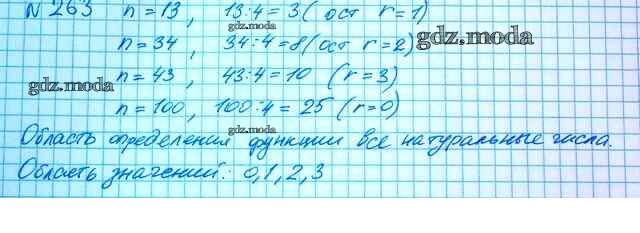 N 263 n = 13, 13:4 = 3 ( ост r = 1)
gdz.moda
n = 34, 34:4 = 8 (ост r = 2) gdz.moda
gdz.moda
gdz.moda n = 43, 43:4 = 10 (r = 3)
gdz.moda
n = 100, 100:4 = 25 (r = 0)
gdz.moda
Область определения функции все натуральные числа.
Область значений: 0, 1, 2, 3
gdz.moda